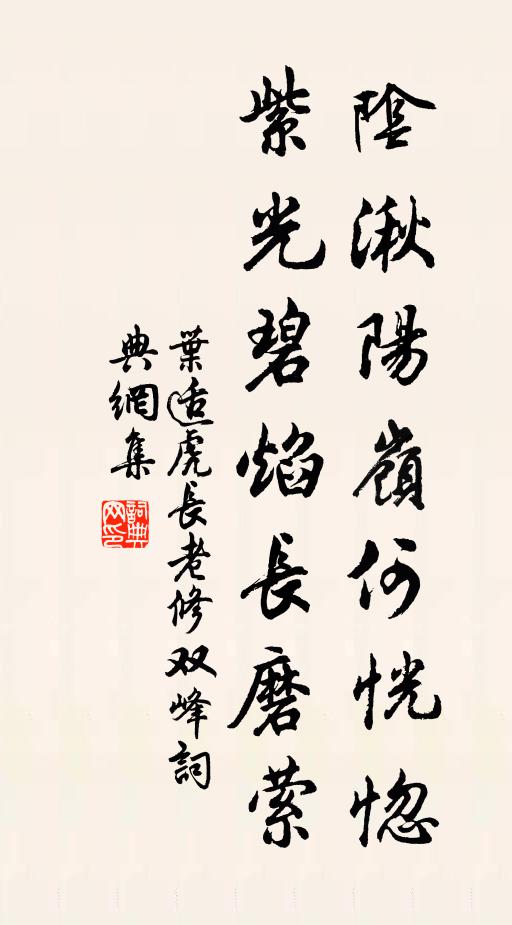 陰湫陽嶺何恍惚
紫光碧焰長磨萦
葉适虎長老修双峰詞
典網集
詞典网印